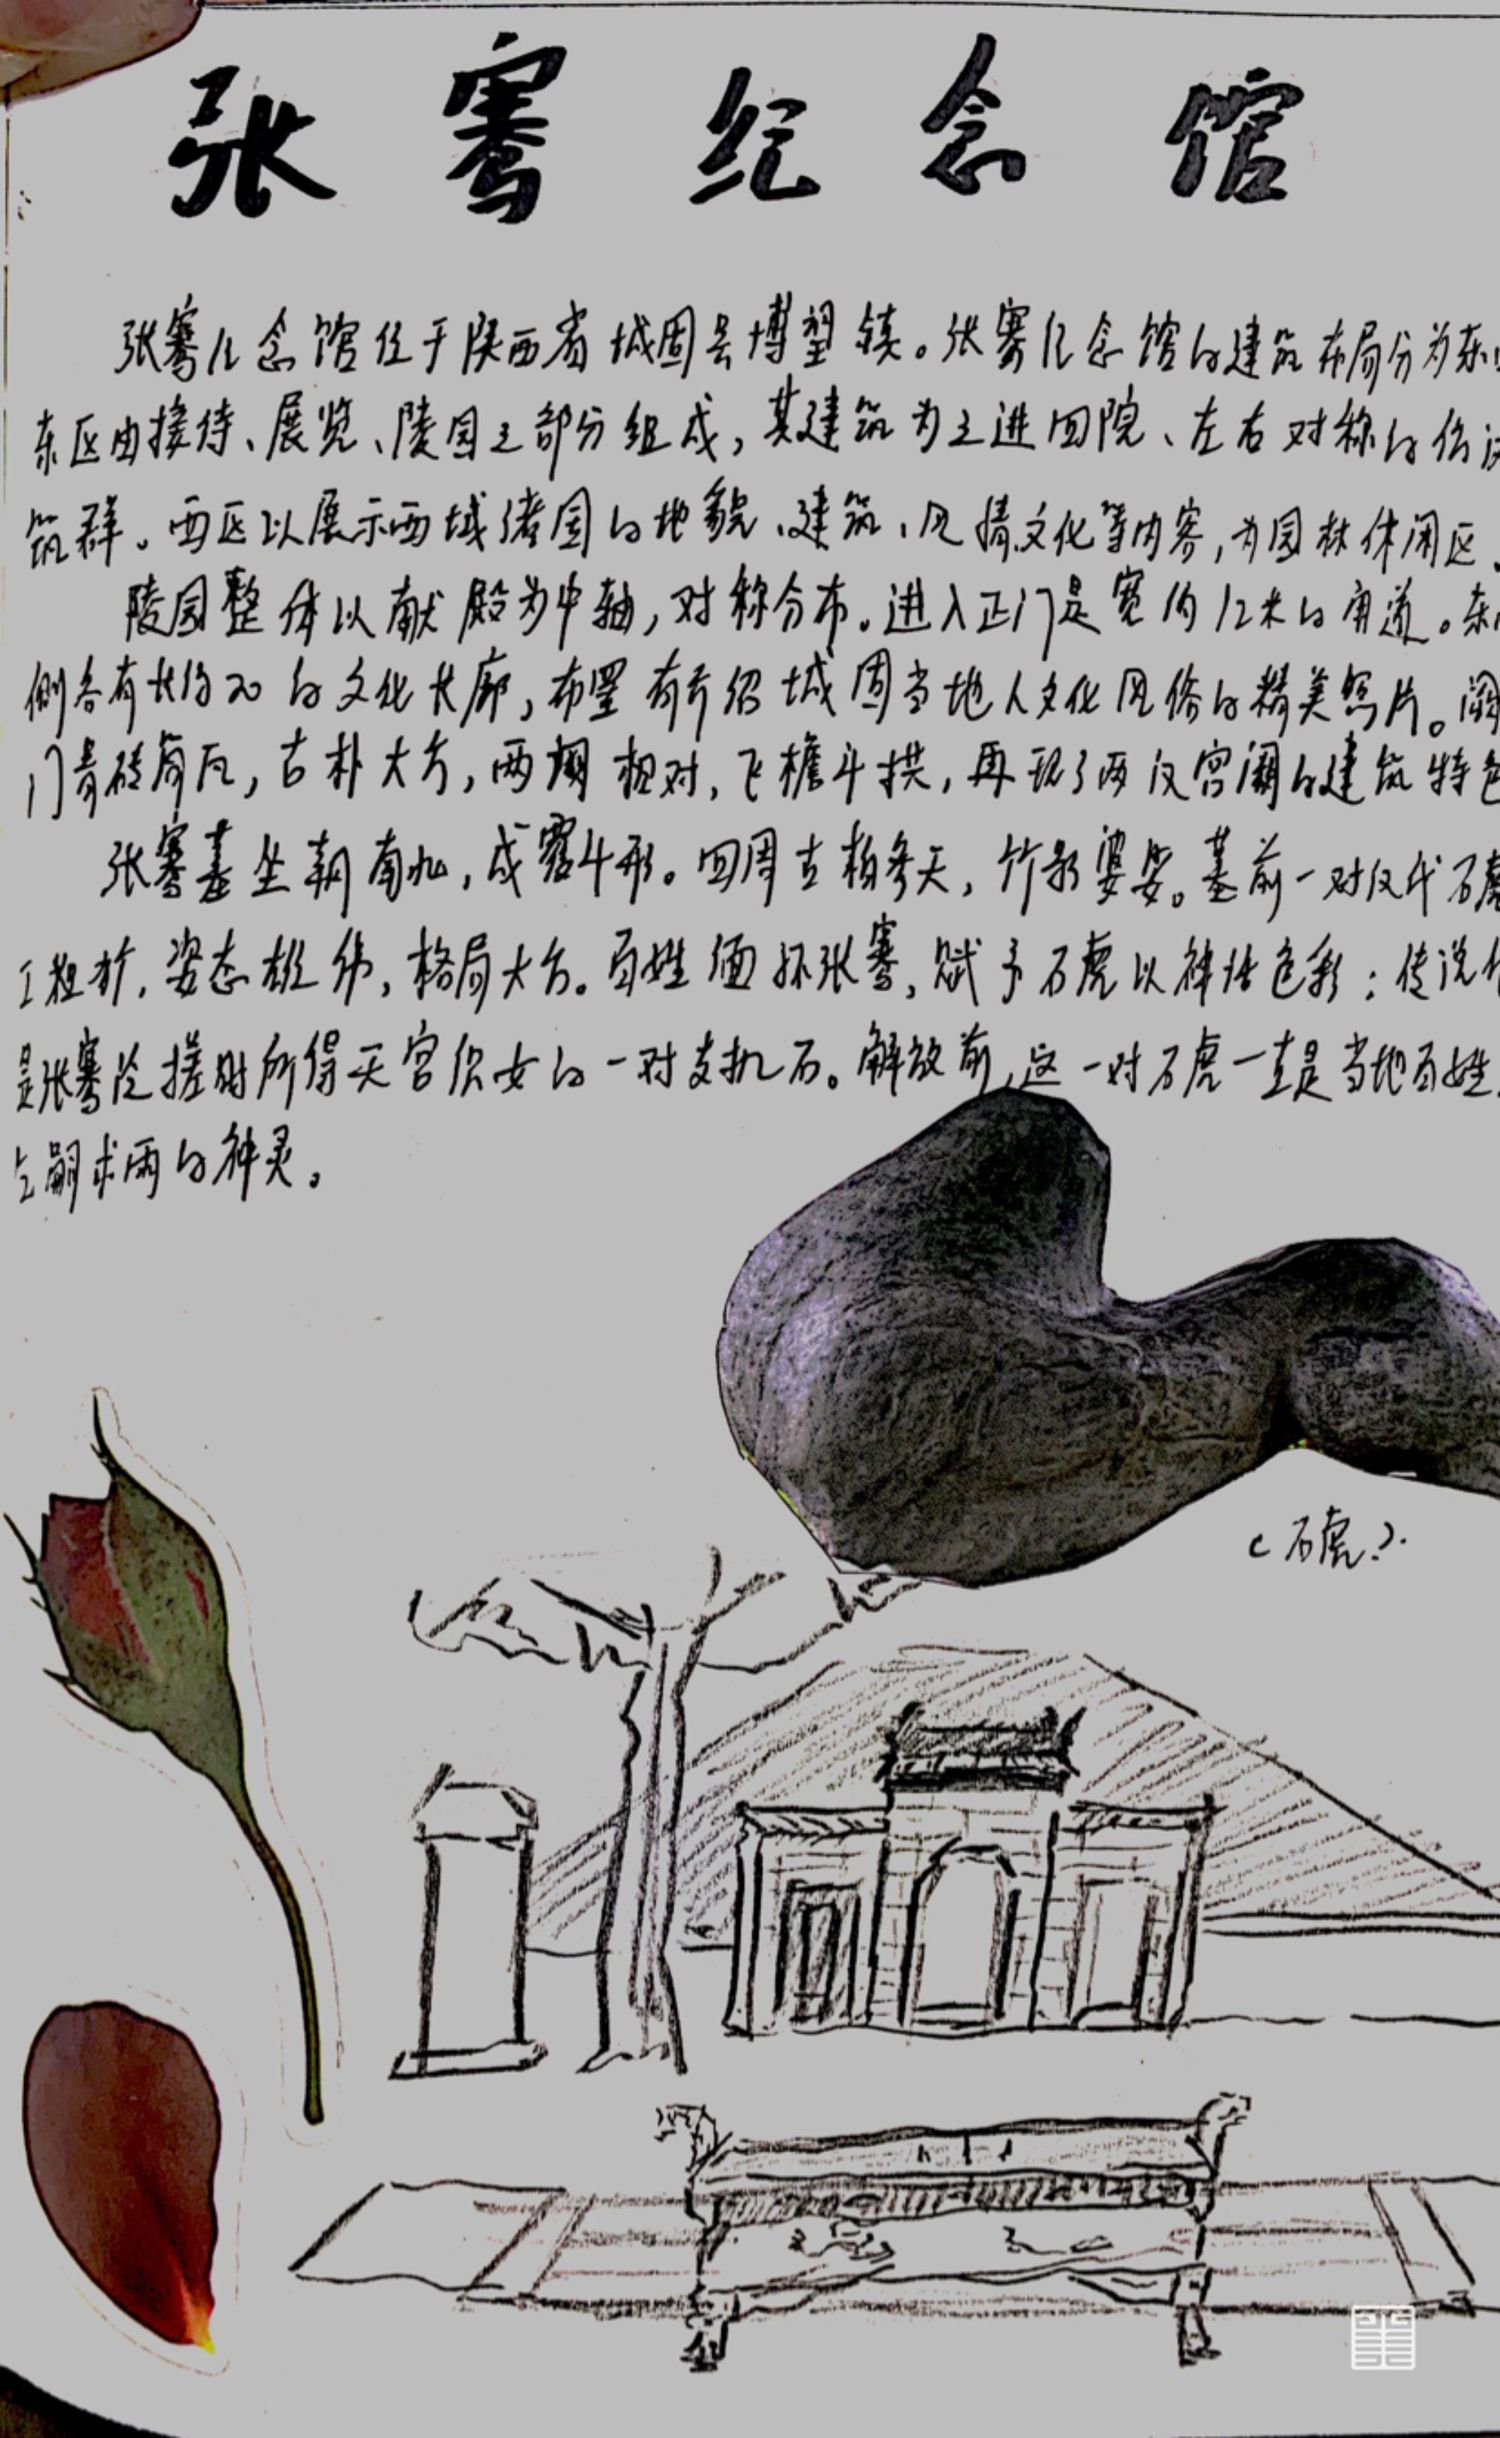 张骞纪念馆
张骞纪念馆位于陕西省城固县博望镇。张骞纪念馆的建筑布局分为东
东区由接待、展览、陵园三部分组成，其建筑为三进四院、左右对称的仿汉
筑群。西区以展示西域诸国的地貌、建筑、风情文化等内容，为园林休闲区。
陵园整体以献殿为中轴，对称分布。进入正门是宽约12米的甬道。东
侧各有长约20的文化长廊，布置有介绍城固当地人文化风俗的精美照片。阙
门青砖筒瓦，古朴大方，两阙相对，飞檐斗拱，再现了两汉宫阙的建筑特色
张骞墓坐朝南北，成覆斗形。四周古柏参天，竹影婆娑。墓前一对汉代石虎
工粗犷，姿态雄伟，格局大方。百姓缅怀张骞，赋予石虎以神话色彩：传说
是张骞泛搓时所得天宫织女的一对支机石。解放前，这一对石虎一直是当地百姓
乞嗣求雨的神灵。
（石虎）